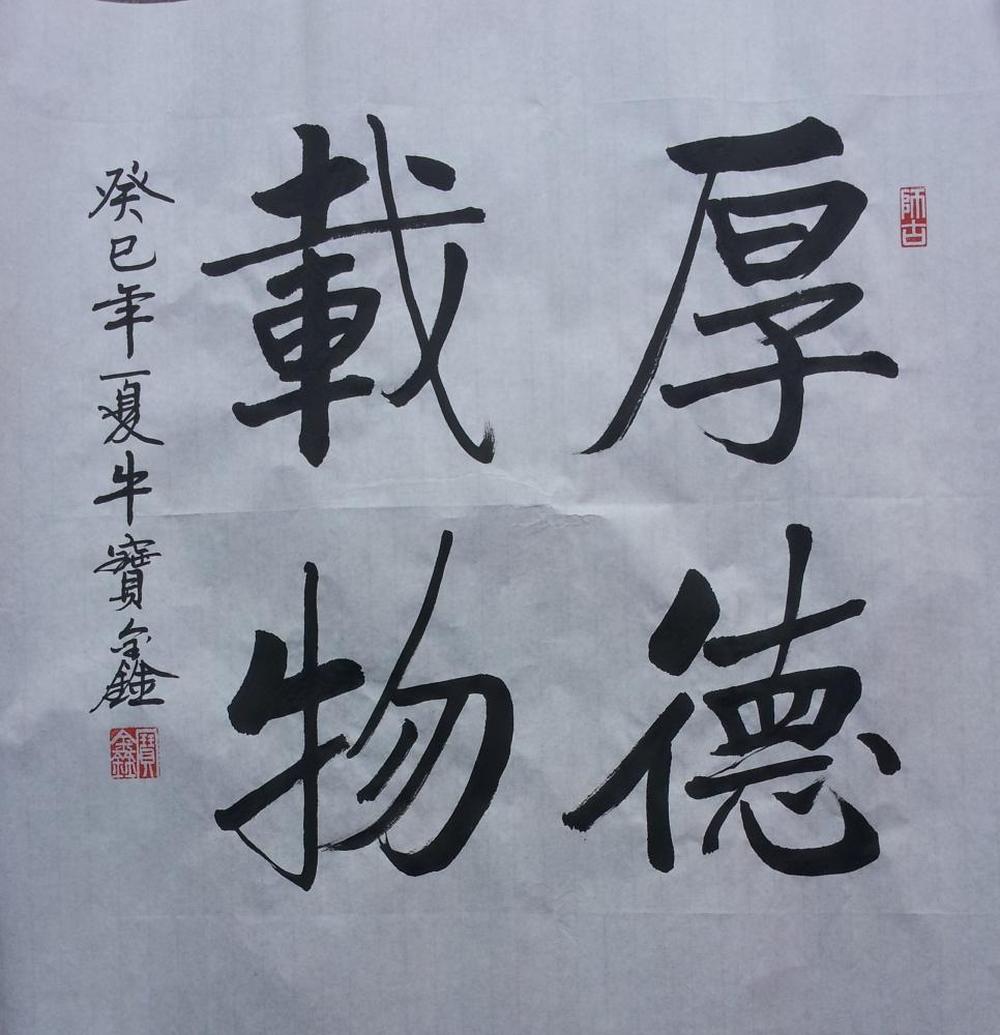 厚德
載物
癸巳年夏牛寶鑫
師古
寶鑫